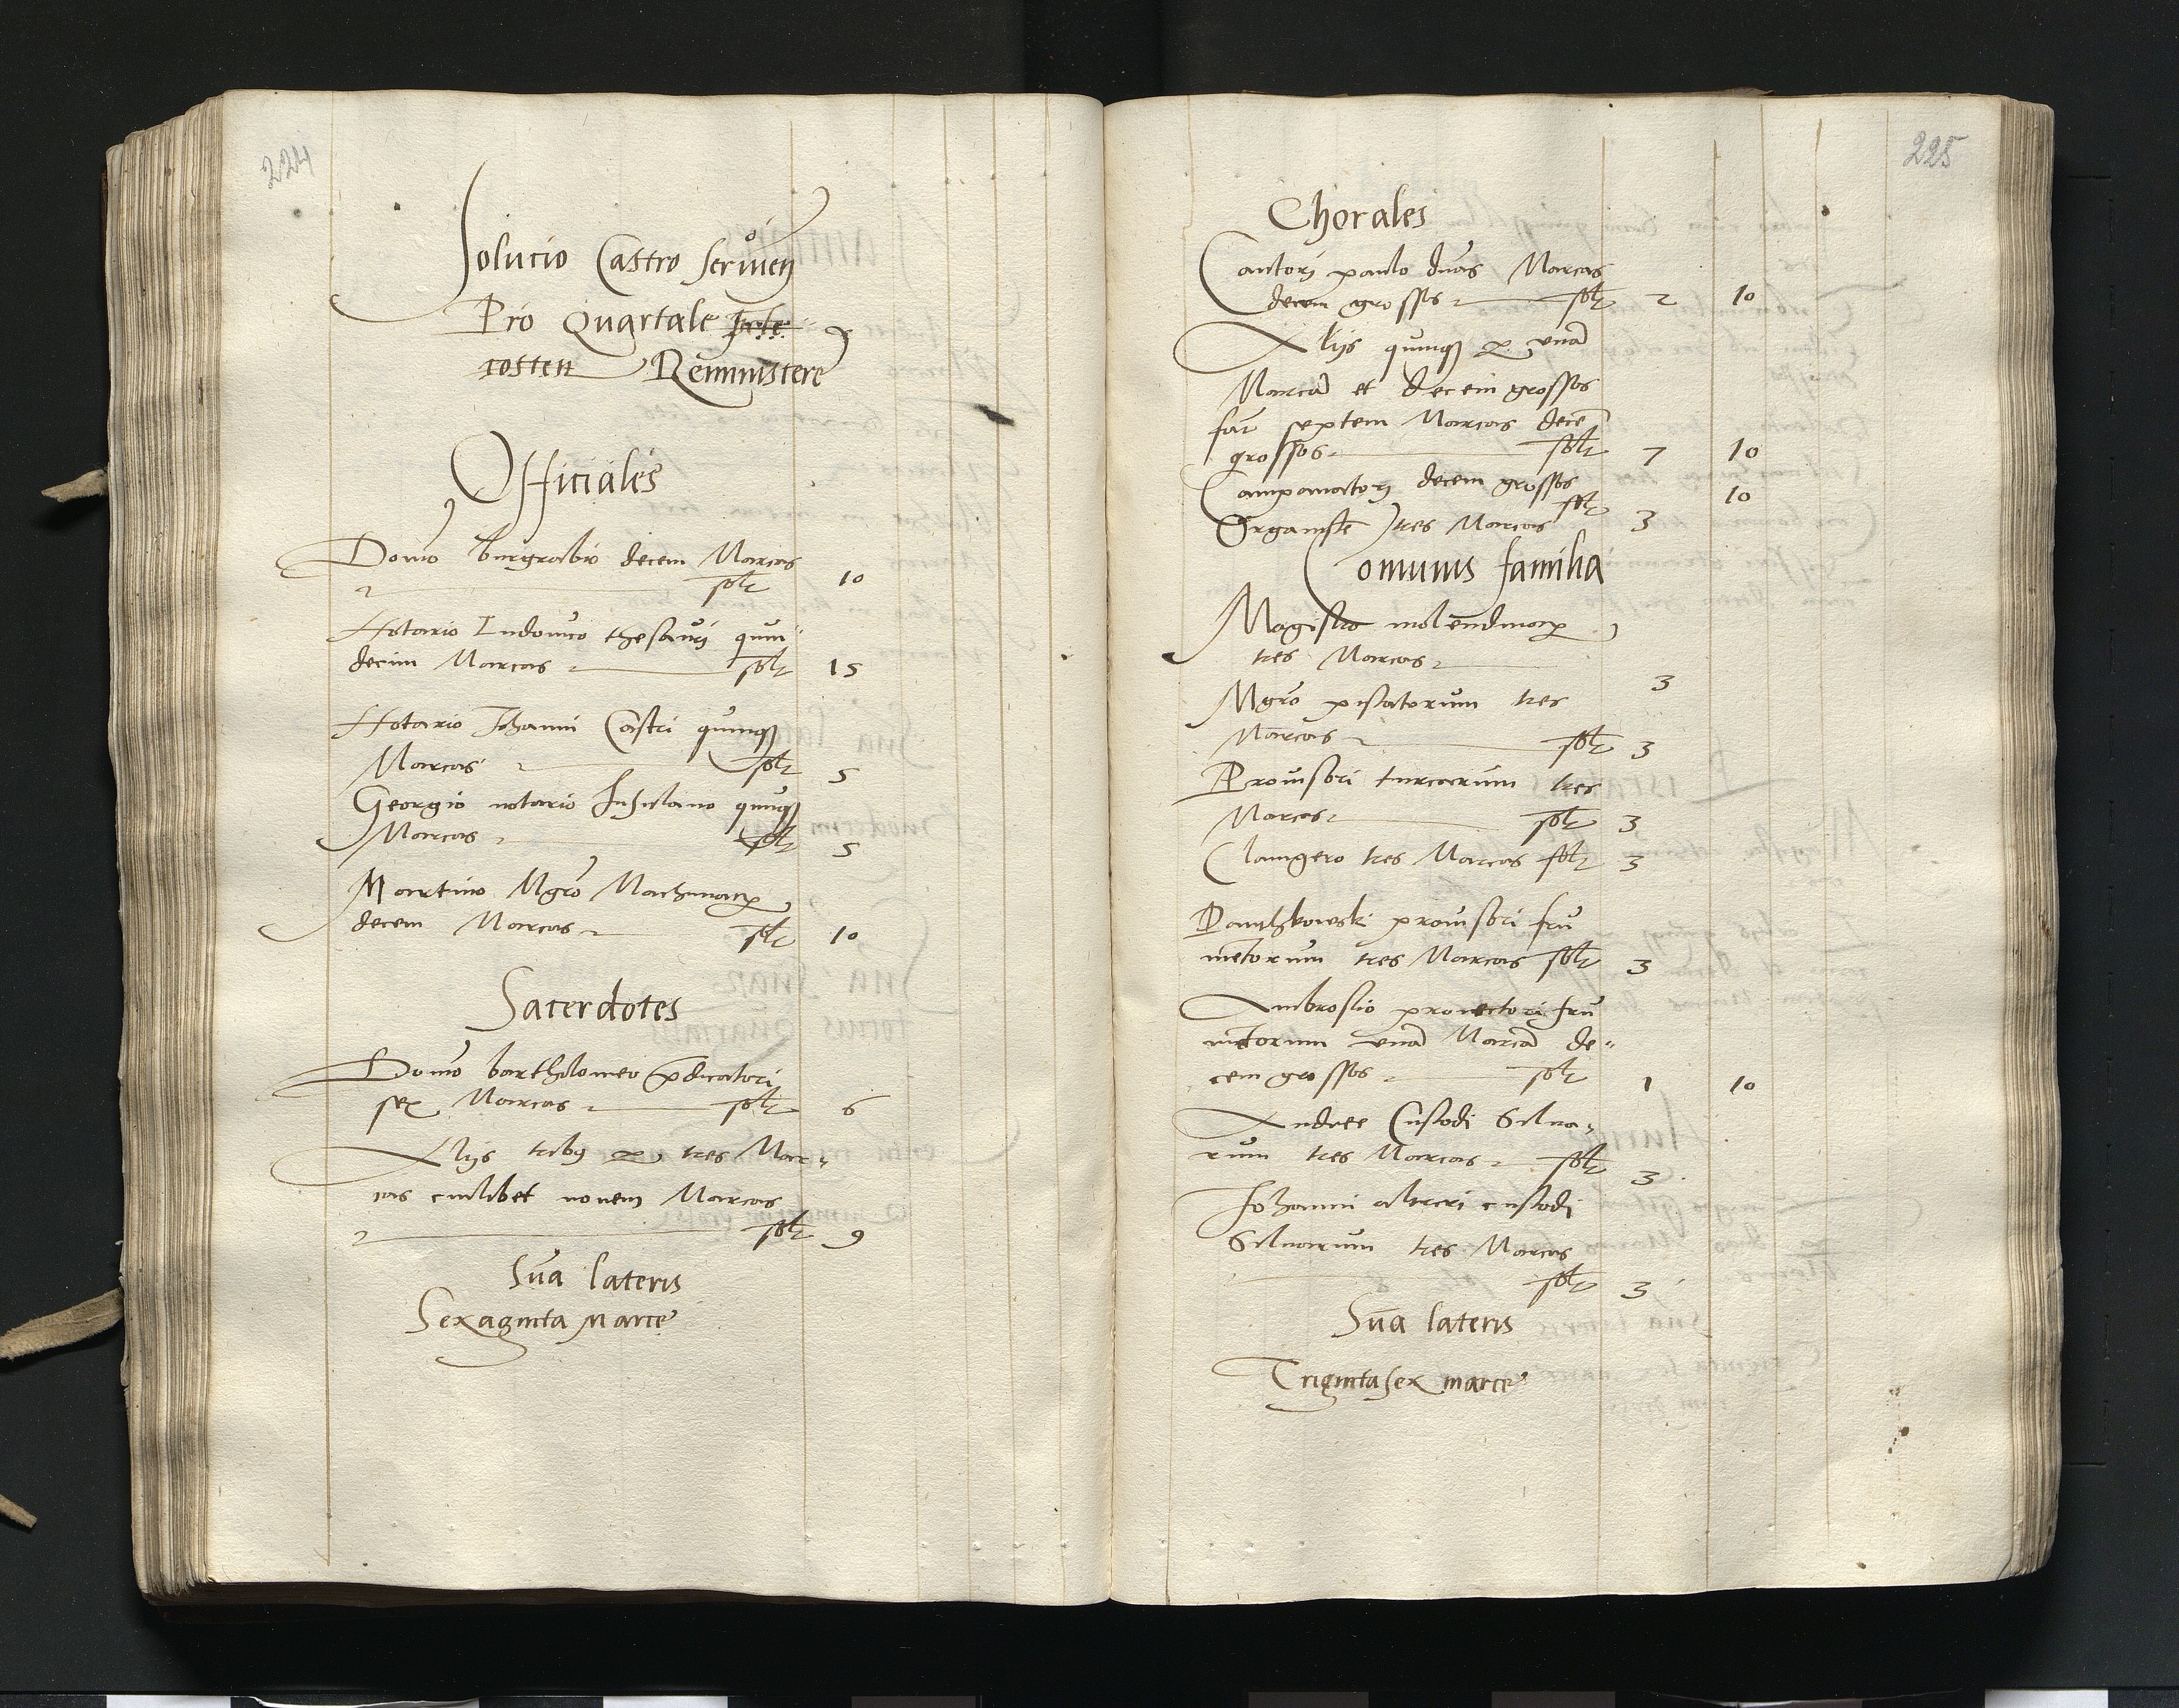 224
Solucio Castro Servien
Pro Quartale
costen Reminiscere
Officiales
Domo burgrabio decem Marcas
solt 10
Notario Ludovico thesauri quin"
decim Marcas solt 15
Notario Johanni Castri quinqz
Marcas solt 5
Georgio notario Insulano quinqz
Marcas solt 5
Martino Mgro Machinarz
decem Marcas solt 10
Sacerdotes
Domo bartholomeo predicatori
sex Marcas solt 6
Aliis tribus per tres Mar"
cas cuilibet novem Marcas
solt 9
Sua lateris
Sexaginta Marce
225
Chorales
Cantori paulo duas Marcas
decem grossos solt 2 10
Aliis quinqz per una
Marca et decem grossos
fat septem Marcas dece
grossos solt 7 10
Campanatori decem grossos 10
Organiste tres Marcas solt 3
Comunis familia
Magistro molendinorz
tres Marcas 3
Mgro piscatorum tres
Marcas solt 3
Provisori turcarum tres
Marcas solt 3
Clavigero tres Marcas solt 3
provisori fru
mētorum tres Marcas solt 3
Ambrosio provectori fru
mētorum una Marca de"
cem grossos solt 1 10
Andree Custodi Silva"
rum tres Marcas solt 3
Johanni alteri custodi
Silvarum tres Marcas
solt 3
Sua lateris
Triginta sex marce